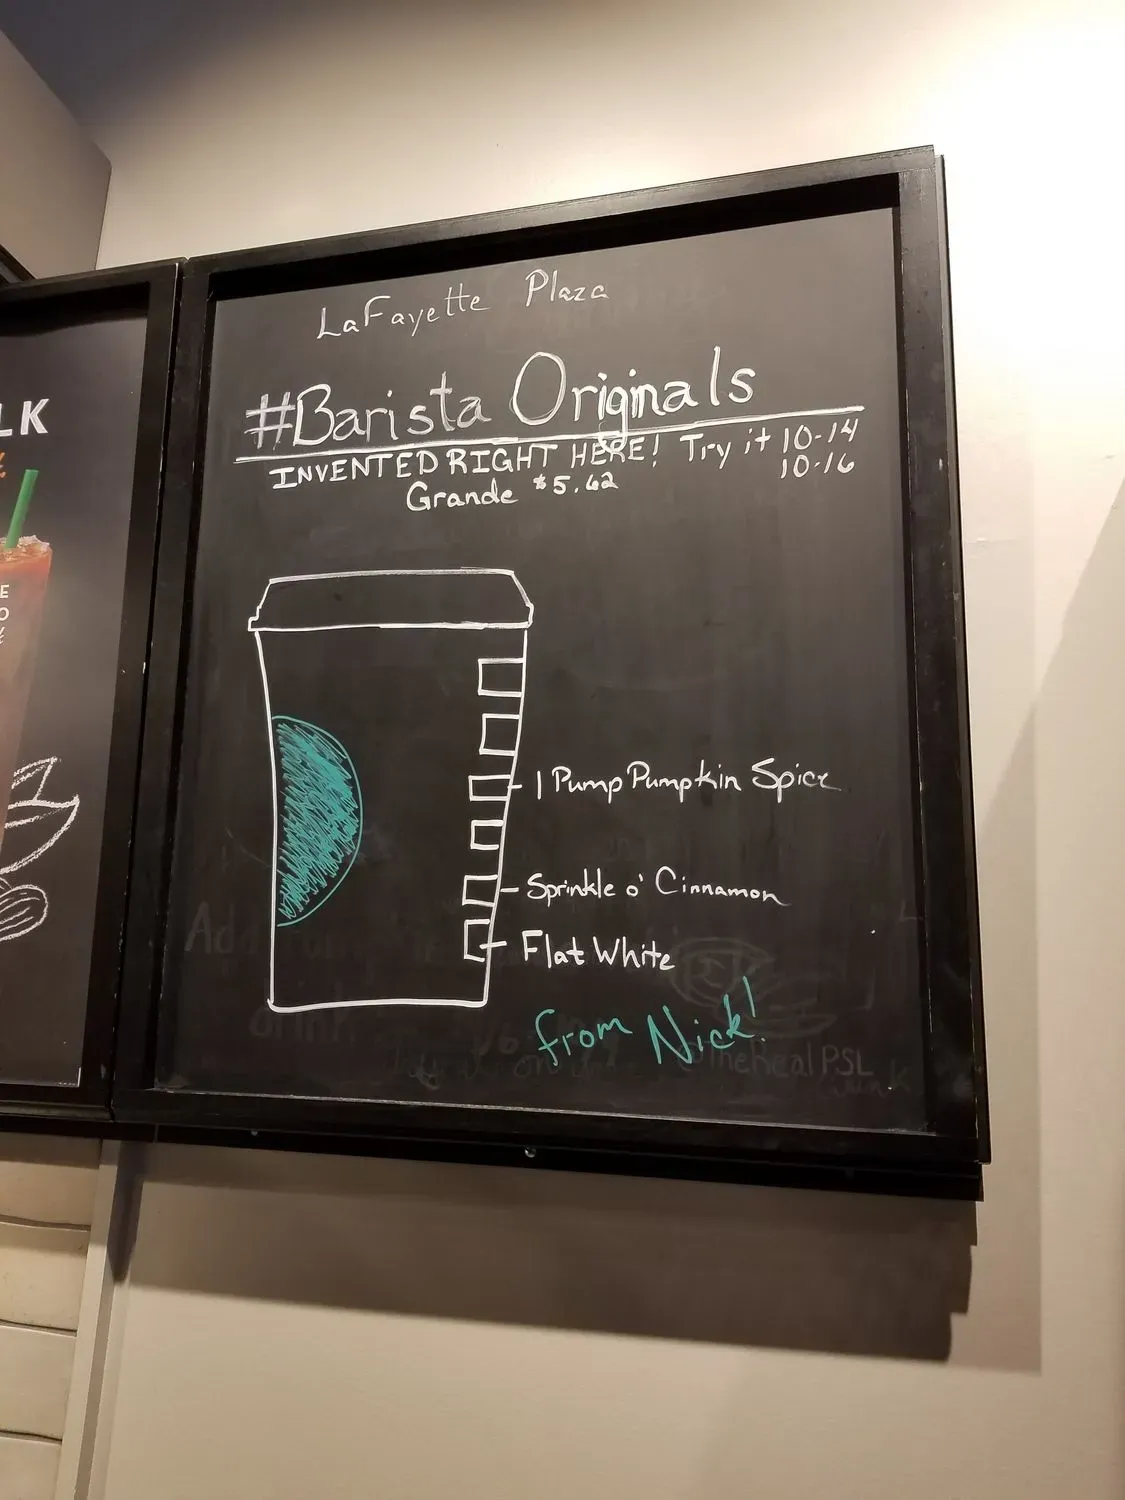 LaFayette Plaza
#Barista Originals
INVENTED RIGHT HERE! Try it 10-14
10-16
Grande $5.62
1 Pump Pumpkin Spice
Sprinkle o' Cinnamon
Flat White
from Nick!
TheRealPSL
LK